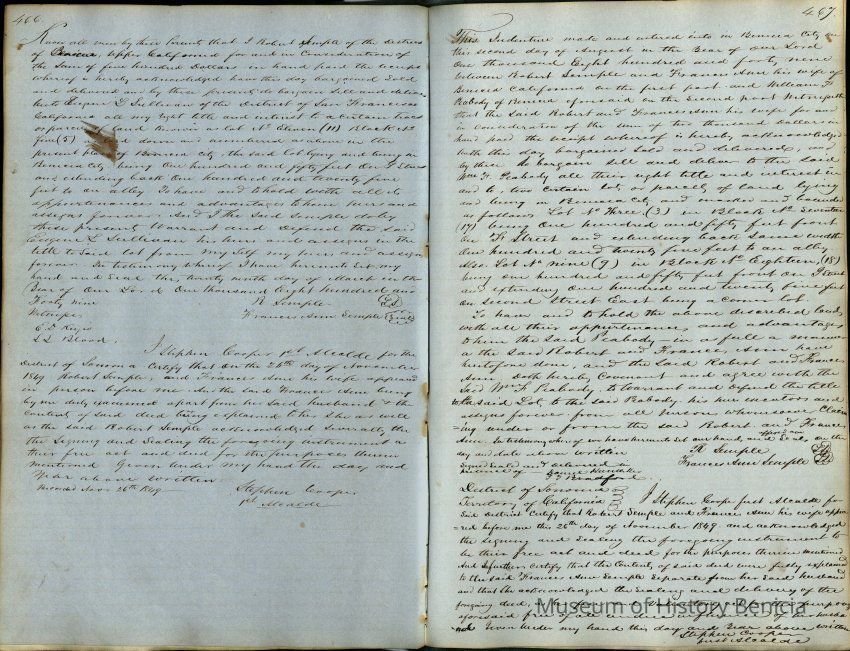 466.
Know all men by these Presents that I Robert Semple of the district
of Benicia, Upper California for and in Consideration of
the Sum of five hundred Dollars in hand paid the receipt
whereof is hereby acknowledged have this day bargained Sold
and delivered and by these presents do bargain Sell and deliver
unto Eugene L Sullivan of the District of San Francisco
California all my right title and interest to a Certain lot
or parcel land known as lot No Eleven (11) Block No
five (5) down and numbered as above in the
present plan of Benicia City, the said lot lying and being in
Benicia City being One hundred and fifty feet On I Street
and extending back One hundred and twenty five
feet to an alley To have and to hold with all its
appertenances and advantages to him his heirs and
assigns forever. And I the Said Semple do by
these presents Warrant and defend the said
Eugene L Sullivan his heirs and assigns in the
title to Said lot from My Self my heirs and assigns
forever. In testimony whereof I have hereunto Set my
hand and Seal this twenty ninth day of March in the
Year of Our Lord One thousand Eight hundred and
Forty nine
R Semple
Witnesses
Frances Ann Semple Seal
L L Blood.
I Stephen Cooper 1st Alcalde for the
District of Sonoma Certify that On the 26th day of November
1849 Robert Semple, and Frances Ann his wife appeared
in person before me and the said Frances Ann being
by me duly examined apart from her Said husband & the
Contents of Said deed being explained to her She as well
as the said Robert Semple acknowledged Severally the
the Signing and Sealing the foregoing instrument as
their free act and deed for the purposes therein
mentioned Given under my hand the day and
Year above written
Recorded Nov 26th 1849
Stephen Cooper
1st Alcalde
467.
This Indenture made and entered into in Benicia City on
this second day of August in the Year of Our Lord
One thousand Eight hundred and forty nine
between Robert Semple and Frances Ann his wife of
Benicia California on the first part and William F.
Peabody of Benicia aforesaid on the Second part Witnesseth
that the said Robert and Frances Ann his wife for and
in consideration of the sum of two thousand Dollars in
hand paid the receipt whereof is hereby acknowledged
hath this day bargained Sold and delivered, and
by these do bargain sell and deliver to the said
Wm F. Peabody all their right title and interest in
and to, two Certain lots or parcels of land lying
and being in Benicia City and marked and bounded
as follows Lot No Three (3) in Block No Seventeen
(17) being One hundred and fifty feet front
On H Street and extending back Same width
One hundred and twenty five feet to an alley
Also Lot No nine (9) in Block No Eighteen, (18)
being one hundred and fifty feet front on I Street
and extending one hundred and twenty five feet
on Second Street East being a corner lot.
To have and to hold the above described land
with all their appertenances and advantages
to him the Said Peabody in as full a manner
as the Said Robert and Frances Ann have
heretofore done, and the Said Robert and Frances
Ann doth hereby Covenant and agree with the
Said Wm F Peabody to Warrant and defend the title
to the Said Lots to the said Peabody his heirs executors and
assigns forever from all person whomsoever Claim
=ing under or from the said Robert and Frances
Ann. In testimony whereof we have hereunto set our hands and Seals on the
day and date above written
R Semple
Signed Sealed and delivered in
Frances Ann Semple
presence of
Bradford
District of Sonoma
Territory of California
I Stephen Cooper first Alcalde for
Said District Certify that Robert Semple and Frances Ann his wife appea
=red before me this 26th day of November 1849 and acknowledged
the Signing and Sealing the foregoing instrument to
be their free act and deed for the purposes therein mentioned
And I further Certify that the Contents of said deed were fully explained
to the said Frances Ann Semple Separate from her Said husband
and that She acknowledged the Sealing and delivery of the
foregoing deed,
aforesaid free of
Given under my hand this day and Year above written
Stephen Cooper
first Alcalde
Museum of History Benicia